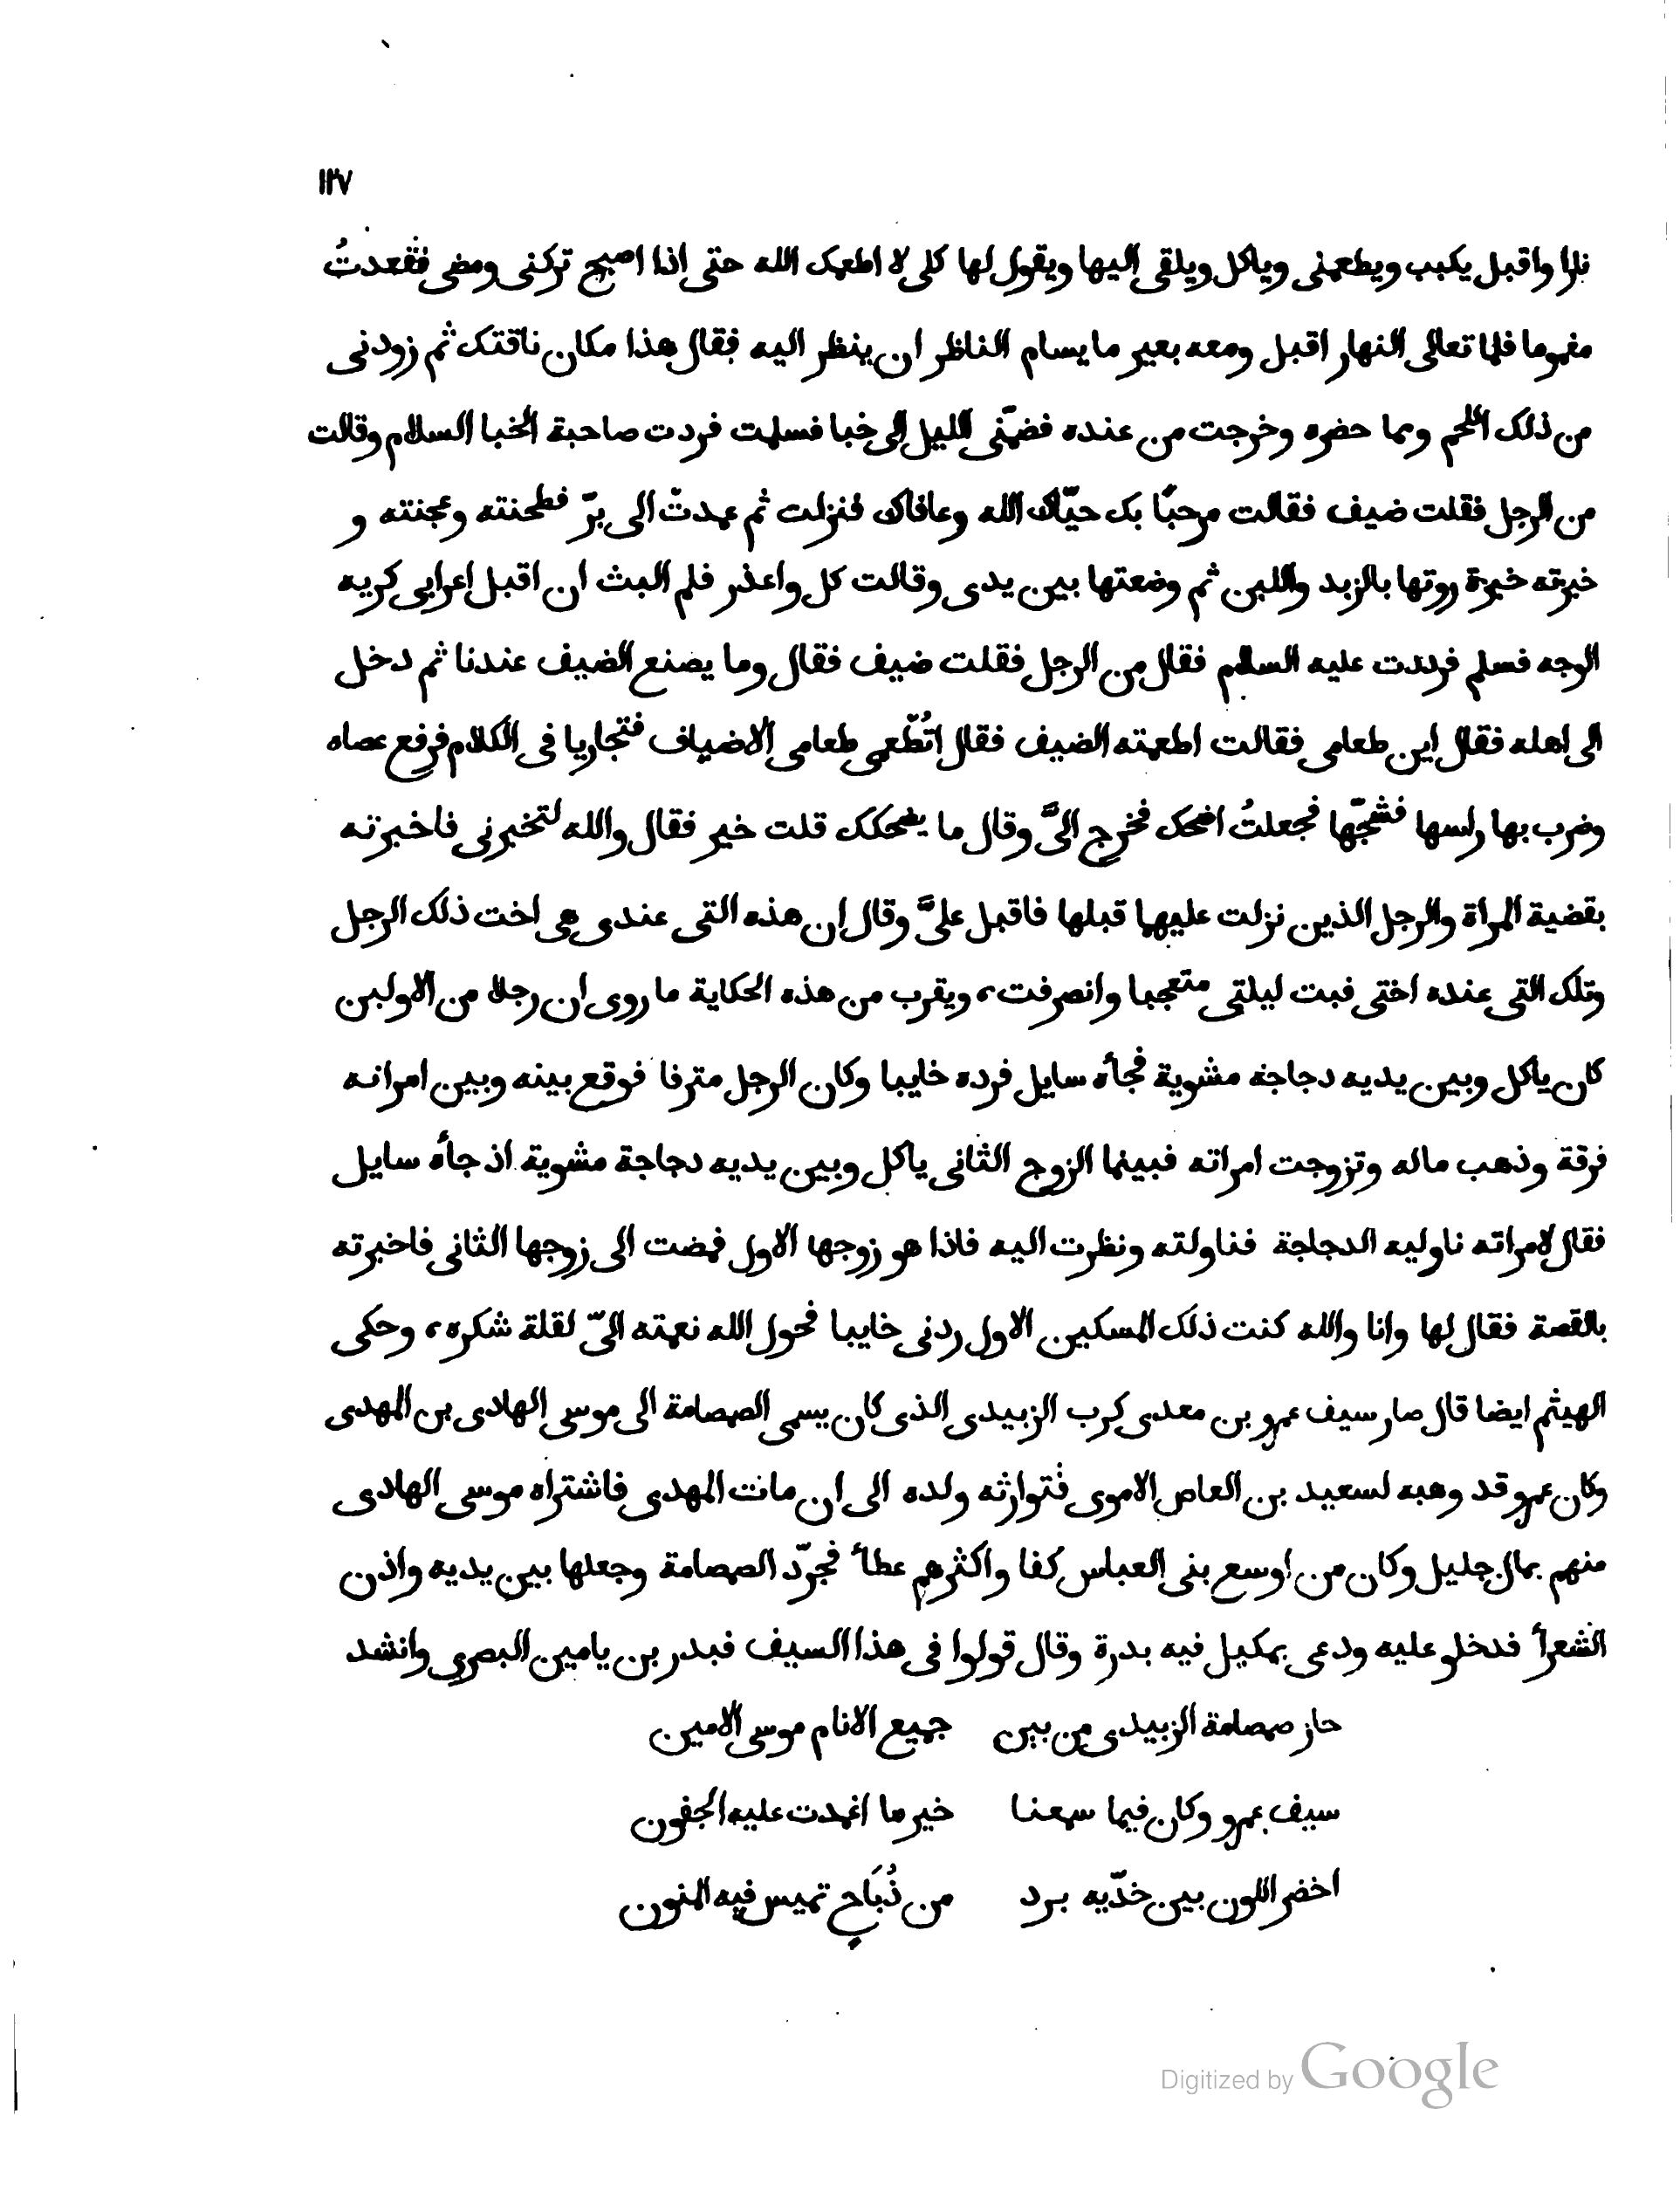 ١٢٧
نارا واقبل يكبب ويطعمنى وياكل ويلقى اليها ويقول لها كلى لا اطعمك الله حتى اذا اصبح تركنى ومضى فقعدتُ
مغموما فلما تعالى النهار اقبل ومعه بعير ما يسام الناظر ان ينظر اليه فقال هذا مكان ناقتك ثم زودنى
من ذلك اللحم ومما حضره وخرجت من عنده فضمّنى الليل الى خبا فسلمت فردت صاحبة الخبا السلام وقالت
من الرجل فقلت ضيف فقالت مرحبًا بك حيّاك الله وعافاك فنزلت ثم عمدتّ الى برّ فطحنته وعجنته و
خبزته خبزة روتها بالزبد واللبن ثم وضعتها بين يدى وقالت كل واعذر فلم البث ان اقبل اعرابى كريه
الوجه فسلم فرددت عليه السلام فقال من الرجل فقلت ضيف فقال وما يصنع الضيف عندنا ثم دخل
الى اهله فقال اين طعامى فقالت اطعمته الضيف فقال اتُطّعمى طعامى الاضياف فتجاريا فى الكلام فرفع عصاه
وضرب بها راسها فشجّها فجعلتُ اضحك فخرج الىَّ وقال ما يضحكك قلت خير فقال والله لتخبرنى فاخبرته
بقضية المراة والرجل الذين نزلت عليهما قبلها فاقبل علىَّ وقال ان هذه التى عندى هى اخت ذلك الرجل
وتلك التى عنده اختى فبت ليلتى متعجبا وانصرفت، ويقرب من هذه الحكاية ما روى ان رجلا من الاولين
كان ياكل وبين يديه دجاجة مشوية فجأه سايل فرده خايبا وكان الرجل مترفا فوقع بينه وبين امراته
فرقة وذهب ماله وتزوجت امراته فبينما الزوج الثانى ياكل وبين يديه دجاجة مشوية اذ جأه سايل
فقال لامراته ناوليه الدجاجة فناولته ونظرت اليه فاذا هو زوجها الاول فمضت الى زوجها الثانى فاخبرته
بالقصة فقال لها وانا والله كنت ذلك المسكين الاول ردنى خايبا فحول الله نعمته الىّ لقلة شكره، وحكى
الهيثم ايضا قال صار سيف عمرو بن معدى كرب الزبيدى الذى كان يسمى الصمصامة الى موسى الهادى بن المهدى
وكان عمرو قد وهبه لسعيد بن العاص الاموى فتوارثه ولده الى ان مات المهدى فاشتراه موسى الهادى
منهم بمال جليل وكان من اوسع بنى العباس كفا واكثرهم عطأ فجرّد الصمصامة وجعلها بين يديه واذن
الشعرأ فدخلو عليه ودعى بمكيل فيه بدرة وقال قولوا فى هذا السيف فبدر بن يامين البصرى وانشد
حاز صمصامة الزبيدى من بين جميع الانام موسى الامين
سيف عمرو وكان فيما سمعنا خير ما اغمدت عليه الجفون
اخضر اللون بين خدّيه برد من ذُبَاحٍ تميس فيه المنون
Digitized by Google